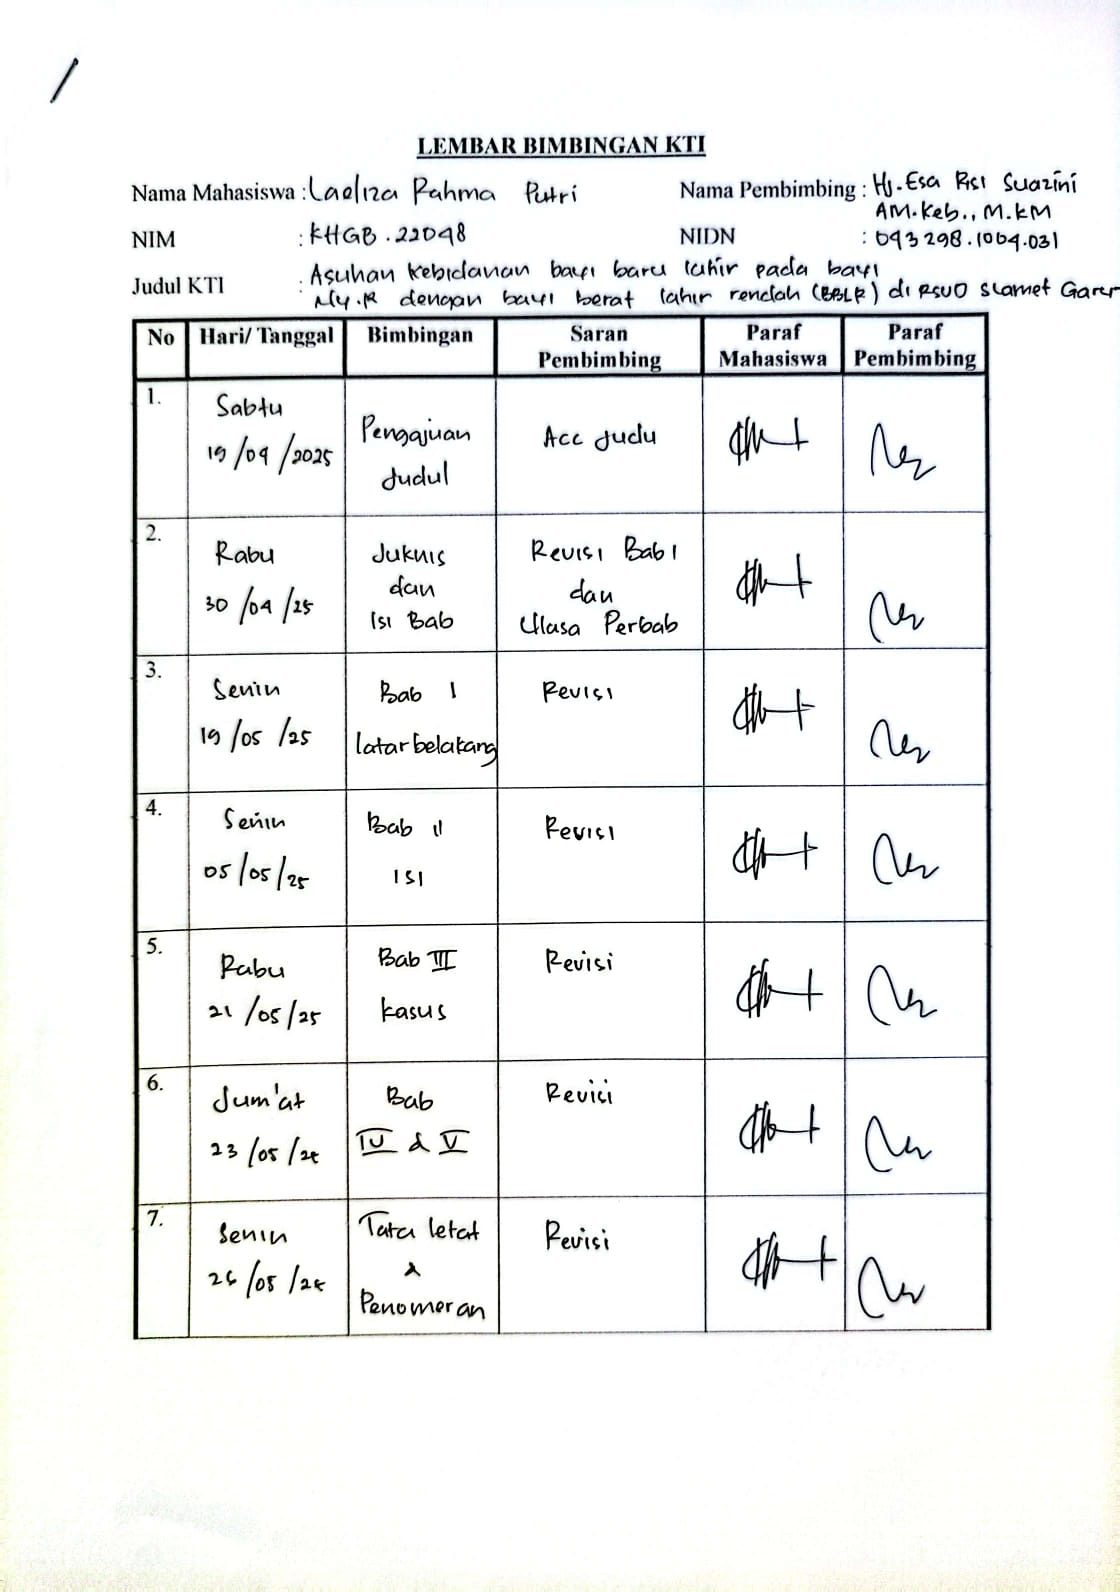 LEMBAR BIMBINGAN KTI
Nama Mahasiswa : Laeliza Rahma Putri
Nama Pembimbing : Hj. Esa Risi Suazini
AM.Keb., M.KM
NIM : KHGB.22098
NIDN : 043298.1004.031
Judul KTI : Asuhan kebidanan bayi baru lahir pada bayi
Ny.R dengan bayi berat lahir rendah (BBLR) di RSUD Slamet Garut
No Hari/ Tanggal Bimbingan Saran Pembimbing Paraf Mahasiswa Paraf Pembimbing
1. Sabtu
19/04/2025
Pengajuan
Judul
Acc Judu
2. Rabu
30/04/25
Juknis
dan
Isi Bab
Revisi Bab I
dan
Ulasa Perbab
3. Senin
19/05/25
Bab I
latar belakang
Revisi
4. Senin
05/05/25
Bab II
ISI
Revisi
5. Rabu
21/05/25
Bab III
kasus
Revisi
6. Jum'at
23/05/25
Bab
IV & V
Revisi
7. Senin
26/05/25
Tata letak
&
Penomeran
Revisi